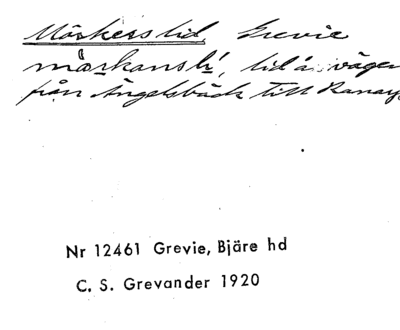 Mörkerslid, Grevie
mårkansli, lid å vägen
från Ängelsbäck till
Nr 12461 Grevie, Bjäre hd
C. S. Grevander 1920